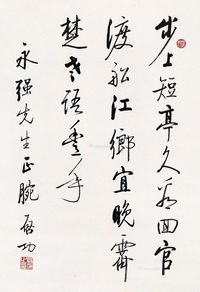 步上短亭久看回官
渡船江鄉宜晚霽
楚老語豐年
永强先生正腕 啟功